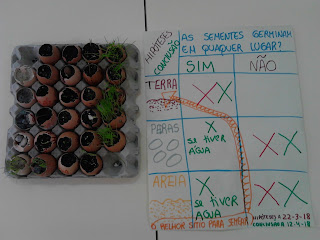 HIPÓTESES
CONCLUSÃO
AS SEMENTES GERMINAM
EM QUALQUER LUGAR?
SIM
NÃO
TERRA
X X
PEDRAS
X
se tiver
ÁGUA
X X
AREIA
X
se tiver
ÁGUA
X X
HIPÓTESES 22-3-18
CONCLUSÃO 12-4-18
O MELHOR SÍTIO PARA SEMEAR